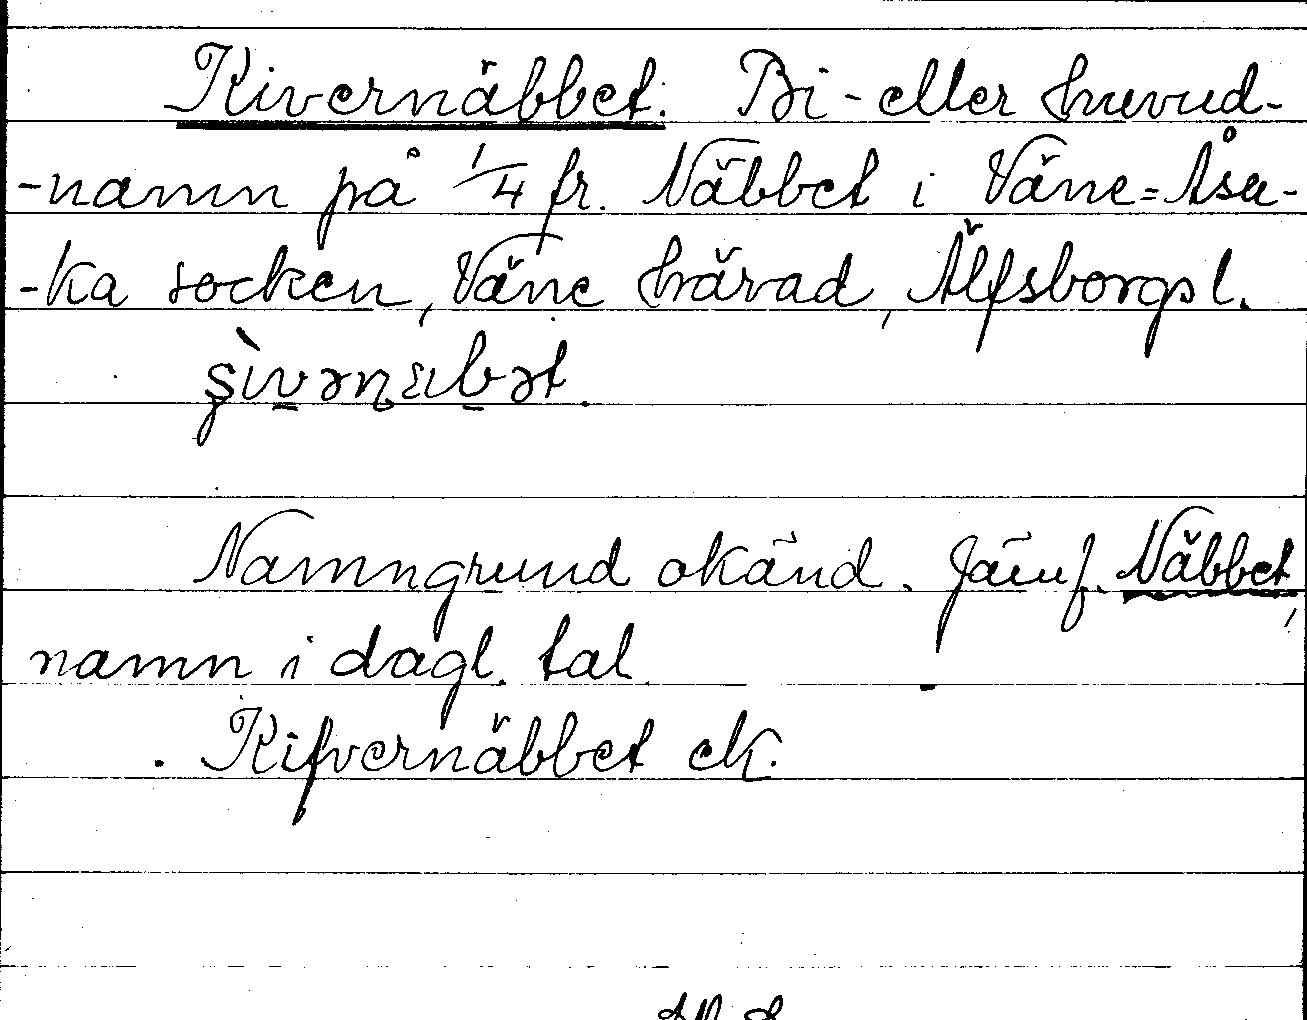 Kivernäbbet. Bi- eller huvud-
-namn på 1/4 fr. Näbbet i Väne=Åsa-
-ka socken, Väne härad, Älfsborgs l.
Namngrund okänd. Jämf. Näbbet,
namn i dagl. tal.
Kifvernäbbet ek.